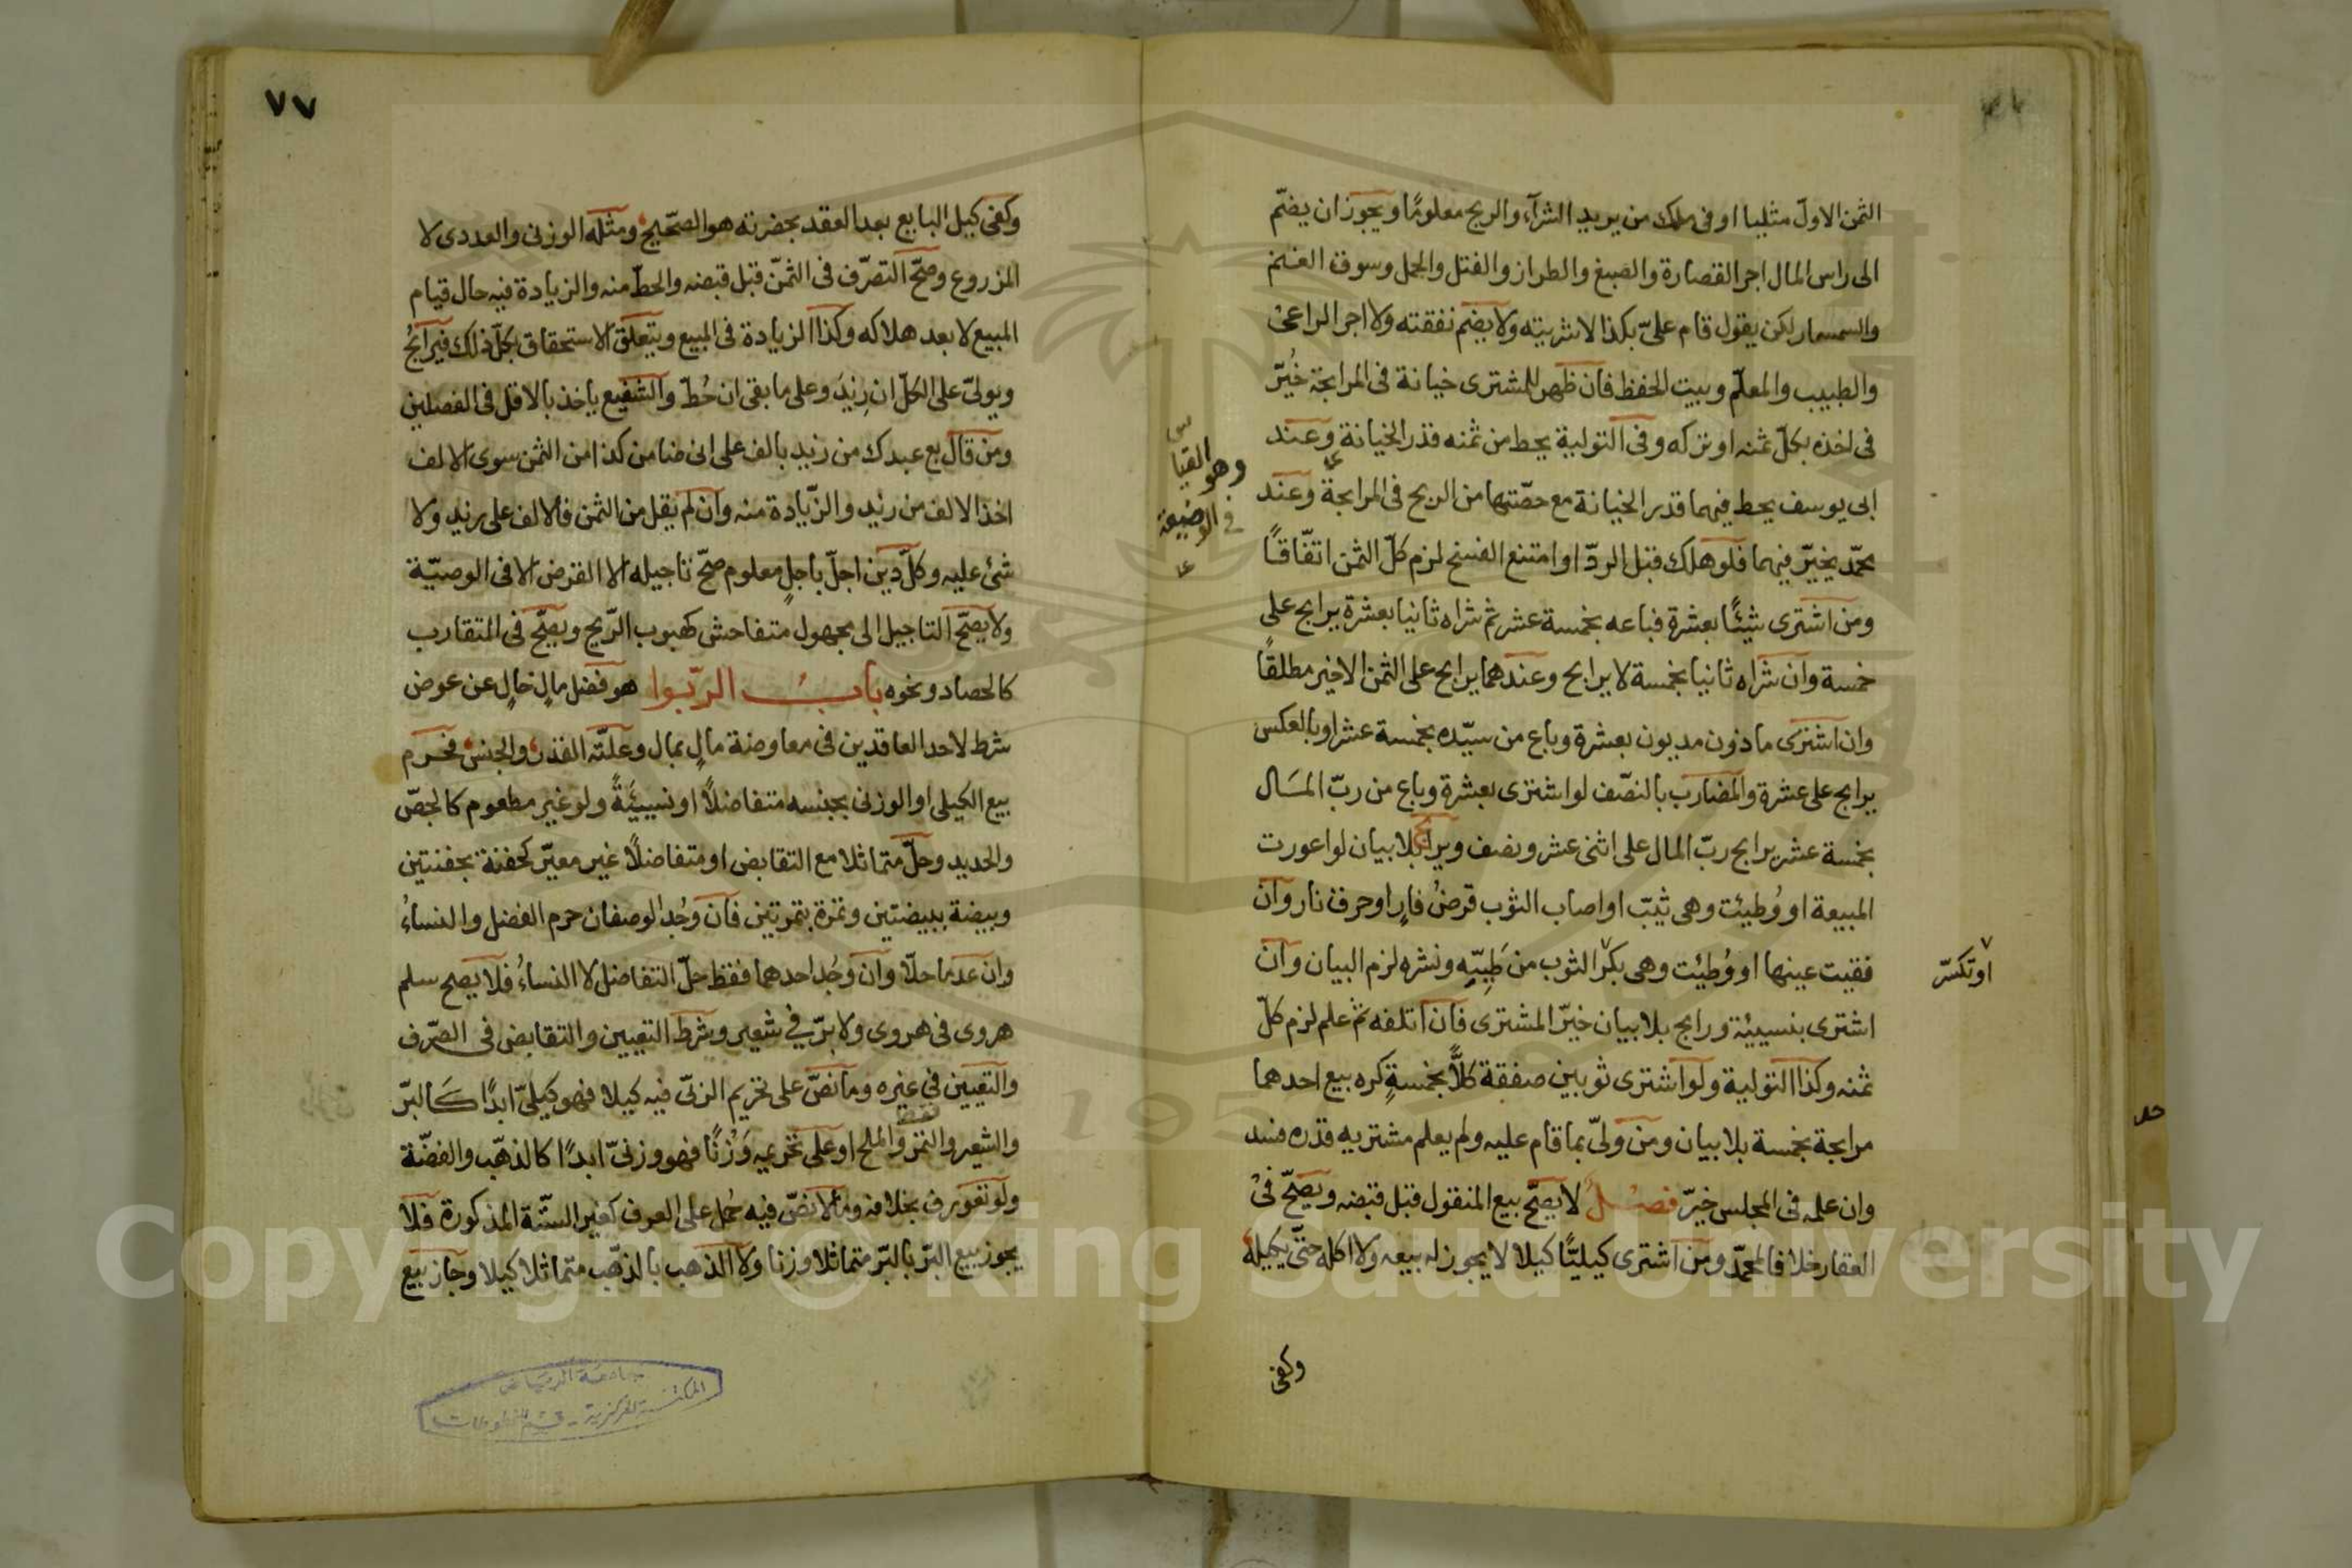 الثمن الاول مثليا او فى ملك من يريد الشرآء والربح معلومًا ويجوز ان يضمّ
الى راس المال اجر القصارة والصبغ والطراز والفتل والحمل وسوق الغنم
والسمسار لكن يقول قام علىّ بكذا لا اشريته ولا يضم نفقته ولا اجر الراعى
والطبيب والمعلّم وبيت الحفظ فان ظهر للمشترى خيانة فى المرابحة خُيّر
فى اخذه بكلّ ثمنه او تركه وفى التولية يحط من ثمنه قدر الخيانة وعند
وهو القياس
فى الوضيعة
ابى يوسف يحط فيهما قدر الخيانة مع حصّتها من الربح فى المرابحة وعند
محمّد يخيّر فيهما فلو هلك قبل الردّ او امتنع الفسخ لزم كلّ الثمن اتّفاقًا
ومن اشترى شيئًا بعشرة فباعه بخمسة عشر ثم شراه ثانيا بعشرة يرابح على
خمسة وان شراه ثانيا بخمسة لا يرابح وعندهما يرابح على الثمن الاخير مطلقًا
وان اشترى ماذون مديون بعشرة وباع من سيّده بخمسة عشر او بالعكس
يرابح على عشرة والمضارب بالنصّف لو اشترى بعشرة وباع من ربّ المال
بخمسة عشر يرابح ربّ المال على اثنى عشر ونصف ويرابح بلا بيان لو اعورت
المبيعة او وُطيئت وهى ثيّب او اصاب الثوب قرضُ فارٍ او حرق نار وان
فقيت عينها او وُطيئت وهى بكر الثوب من طَيِّهِ ونشره لزم البيان وان
او تكسّر
اشترى بنسيئة ورابح بلا بيان خيّر المشترى فان اتلفه ثم علم لزم كلّ
ثمنه وكذا التولية ولو اشترى ثوبين صفقة كلًّا بخمسةٍ كره بيع احدهما
مرابحة بخمسة بلا بيان ومن ولّى بما قام عليه ولم يعلم مشتريه قدره فسد
وان علمه فى المجلس خيّر فصل لا يصحّ بيع المنقول قبل قبضه ويصحّ فى
العقار خلافا لمحمّد ومن اشترى كيليًّا كيلا لا يجوز له بيعه ولا اكله حتّى يكيله
وكفى
٧٧
وكفى كيل البايع بعد العقد بحضرته هو الصّحيح ومثله الوزنى والعددى لا
المزروع وصحّ التصرّف فى الثمّن قبل قبضه والحطّ منه والزيادة فيه حال قيام
المبيع لا بعد هلاكه وكذا الزيادة فى المبيع ويتعلّق الاستحقاق بكلّ ذلك فيرابحُ
ويولىّ على الكلّ ان زِيدَ وعلى ما بقى ان حُطّ والشفيع ياخذ بالاقل فى الفصلين
ومن قال بع عبدك من زيد بالف على انى ضامن كذا من الثمن سوى الالف
اخذ الالف من زيد والزّيادة منه وان لم يقل من الثمن فالالف على زيد ولا
شئ عليه وكلّ دين اجلّ باجلٍ معلوم صحّ تاجيله الا القرض الا فى الوصيّة
ولا يصّح التاجيل الى مجهول متفاحش كهبوب الرّيح ويصّح فى المتقارب
كالحصاد ونحوه بابُ الرّبوا هو فضل مالٍ خالٍ عن عوض
شرط لاحد العاقدين فى معاوضة مالٍ بمال وعلّته القدر والجنس فحرم
بيع الكيلى او الوزنى بجنسه متفاضلًا او نسيئَةً ولو غير مطعوم كالجصّ
والحديد وحلّ متماثلا مع التقابض او متفاضلًا غير معيّر كحفنة بحفنتين
وبيضة ببيضتين وتمرة بتمرتين فان وجُد الوصفان حرم الفضل والنساءُ
وان عدما حلّا وان وجُد احدهما فقط حلّ التفاضل لا النساءُ فلا يصح سلم
هروى فى هروى ولا برّ فى شعير وشرط التعيين والتقابض فى الصّرف
والتعيين فى غيره وما نصّ على تحريم الربى فيه كيلا فهو كيلىّ ابدًا كالبرّ
والشعير والتمر والملح او على تحريمه وَزْنًا فهو وزنىّ ابدًا كالذهّب والفضّة
ولو تعورف بخلافه وما لا نصّ فيه حُمل على العرف كغير الستّة المذكورة فلا
يجوز بيع البّر بالبّر متماثلا وزنا ولا الذهب بالذهّب متماثلا كيلا وجاز بيع
جامعة الرياض
المكتبة المركزية - قسم المخطوطات
Copyright © King Saud University
195